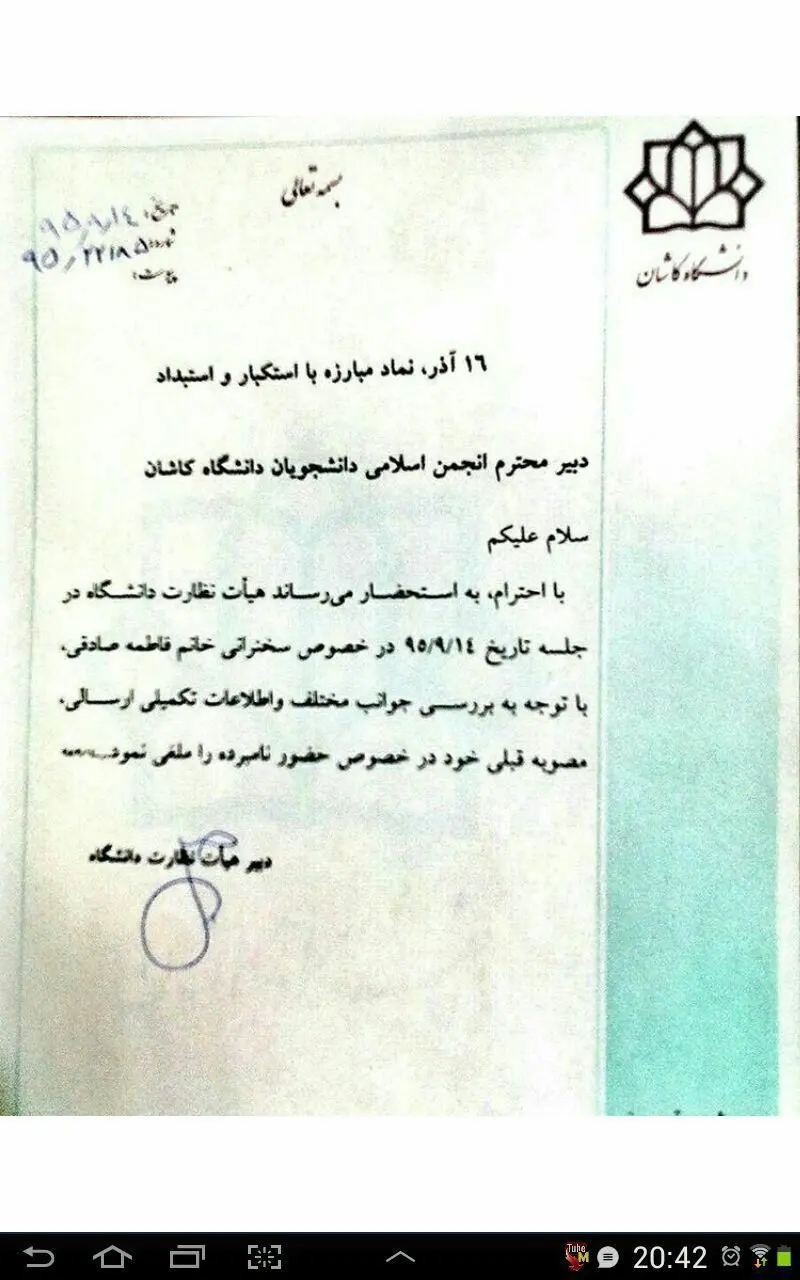 بسمه تعالی
دانشگاه کاشان
تاریخ:
شماره: ۹۵/۲۲۱۸۵
پیوست:
۱۶ آذر، نماد مبارزه با استکبار و استبداد
دبیر محترم انجمن اسلامی دانشجویان دانشگاه کاشان
سلام علیکم
با احترام، به استحضار می‌رساند هیأت نظارت دانشگاه در
جلسه تاریخ ۹۵/۹/۱٤ در خصوص سخنرانی خانم فاطمه صادقی،
با توجه به بررسی جوانب مختلف واطلاعات تکمیلی ارسالی،
مصوبه قبلی خود در خصوص حضور نامبرده را ملغی
دبیر هیأت نظارت دانشگاه
Tube
M
20:42